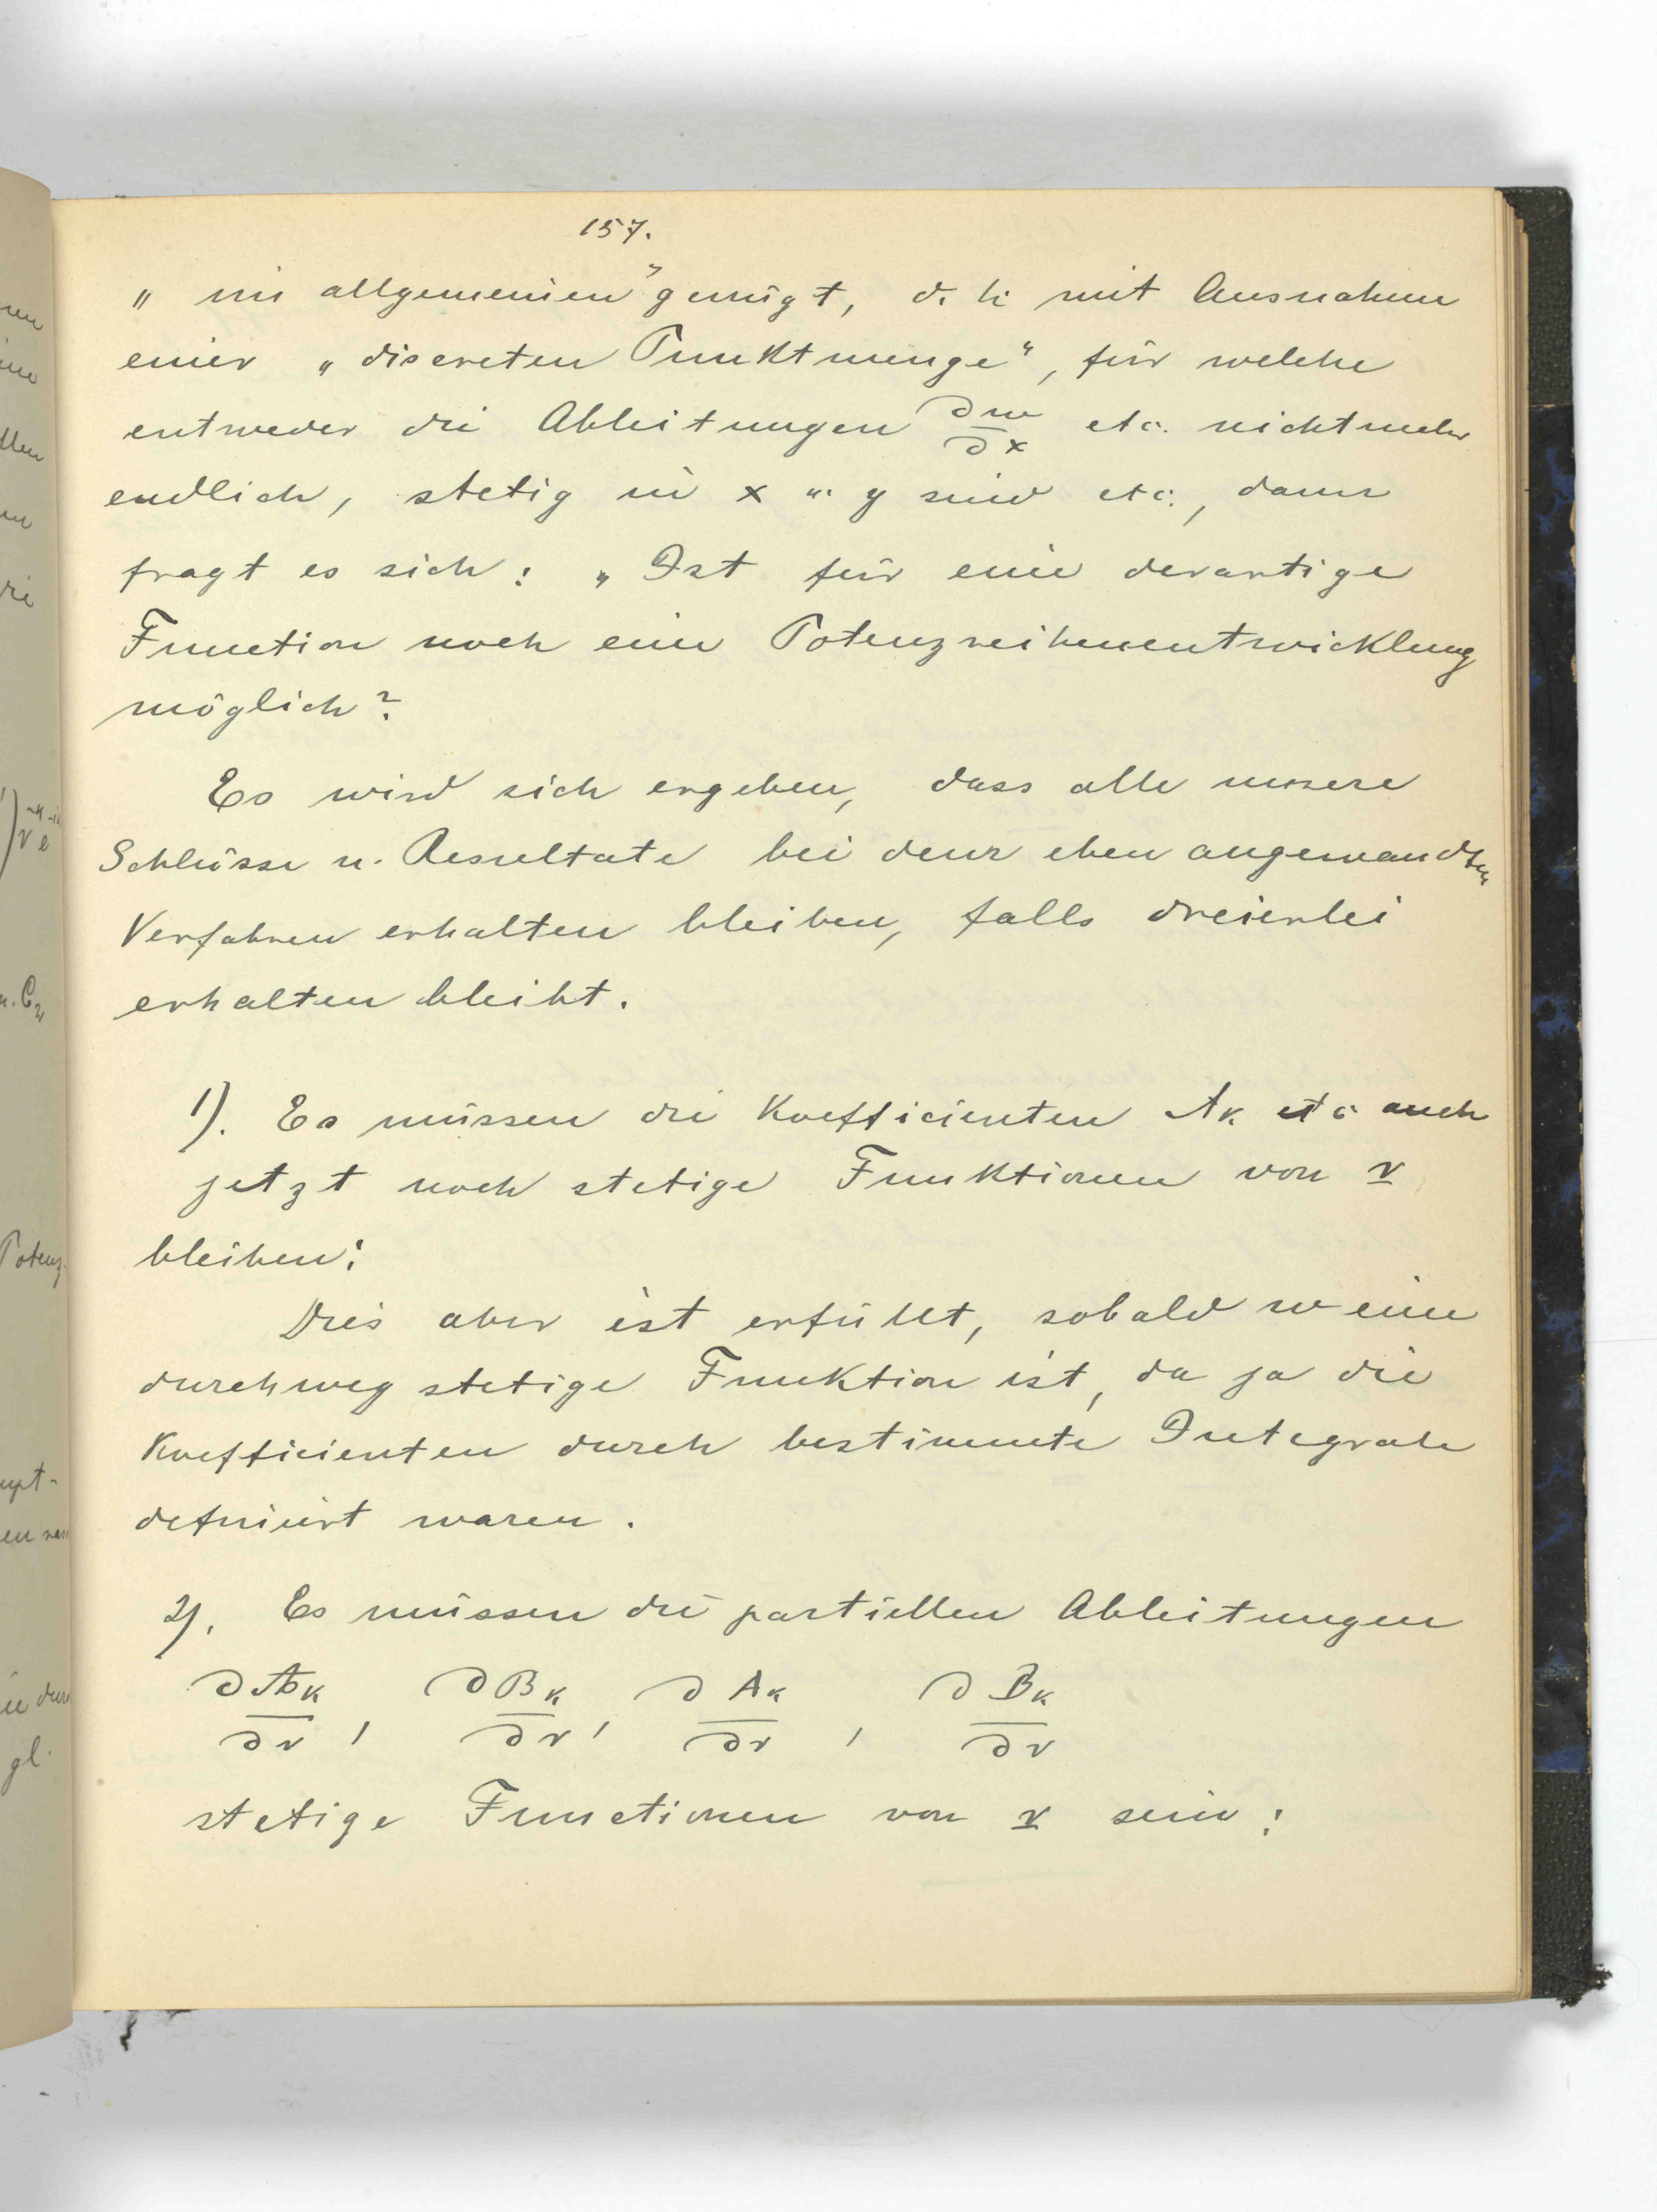 157.
„ im allgemeinen" genügt, d. h. mit Ausnahme
einer „ discreten Punktmenge", für welche
entweder die Ableitungen ∂w/∂x etc. nicht mehr
endlich, stetig in x u. y sind etc., dann
fragt es sich: „ Ist für eine derartige
Function noch eine Potenzreihenentwicklung
möglich?
Es wird sich ergeben, dass alle unsere
Schlüsse u. Resultate bei dem eben angewandten
Verfahren erhalten bleiben, falls dreierlei
erhalten bleibt.
1). Es müssen die Koefficienten Ak etc auch
jetzt noch stetige Funktionen von r
bleiben:
Dies aber ist erfüllt, sobald w eine
durchweg stetige Funktion ist, da ja die
Koefficienten durch bestimmte Integrale
definiert waren.
2). Es müssen die partiellen Ableitungen
∂Ak/∂r, ∂Bk/∂r, ∂Ak/∂r, ∂Bk/∂r
stetige Functionen von r sein: